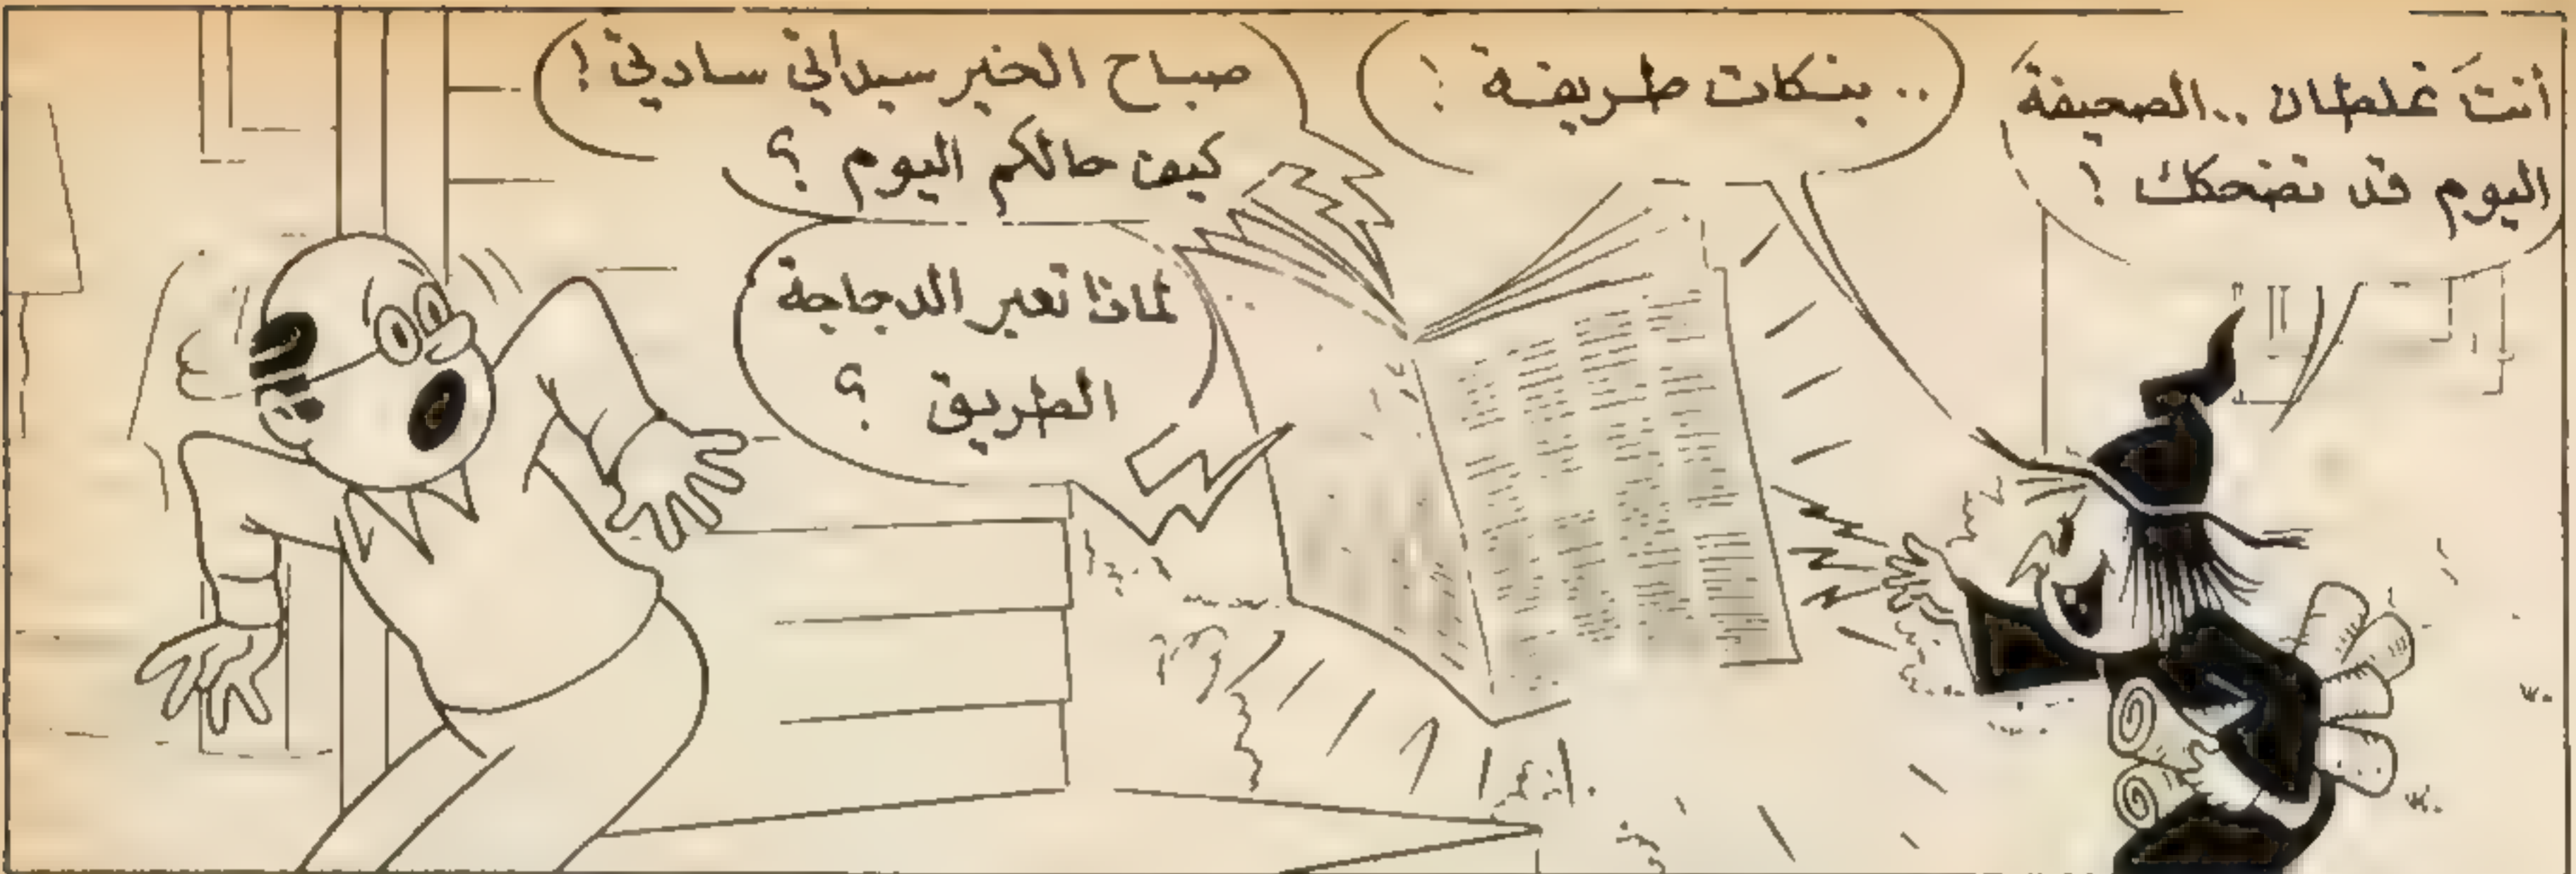 أنتَ غلطان ..الصحيفةَ
اليوم قد تضحكك !
.. بنكات طريفة !
صباح الخير سيداتي سادتي !
كيف حالكم اليوم ؟
لماذا تعبر الدجاجة
الطريق ؟